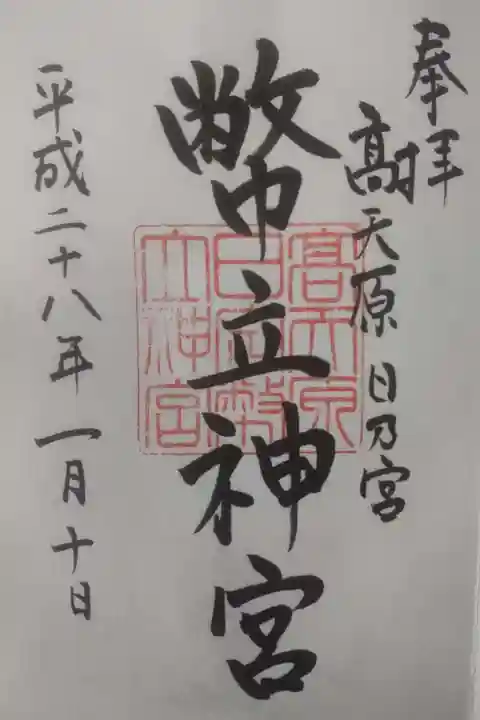 奉拝
髙天原 日乃宮
幣立神宮
平成二十八年 一月 十日
髙天原
日宮幣
立神宮